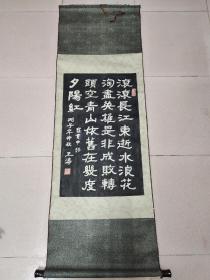 滾滾長江東逝水浪花
淘盡英雄是非成敗轉
頭空青山依舊在幾度
夕陽紅